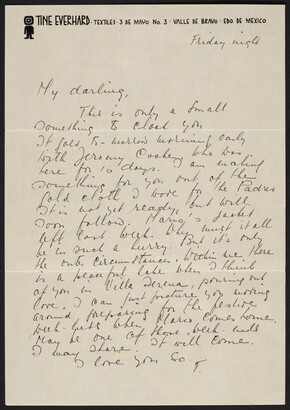 TINE EVERHARD · TEXTILES · 5 DE MAYO No. 3 · VALLE DE BRAVO · EDO. DE MEXICO
Friday night
My darling,
This is only a small
something to cloak you
It goes to-morrow morning early
with Jeremy who was
here for 10 days. I am making
something for you out of the
gold cloth I wove for the Padre
It is not yet ready, but will
soon follow. Mario's jacket
left last week. Why must it all
be in such a hurry. But it's only
the outer circumstances. Within me there
is a peaceful lake when I think
of you in Villa Serena, pouring out
love. I can just picture you moving
around preparing for the festive
week-ends when Claric comes home.
May be one of those week-ends
I may share. It will come.
I love you so
T.